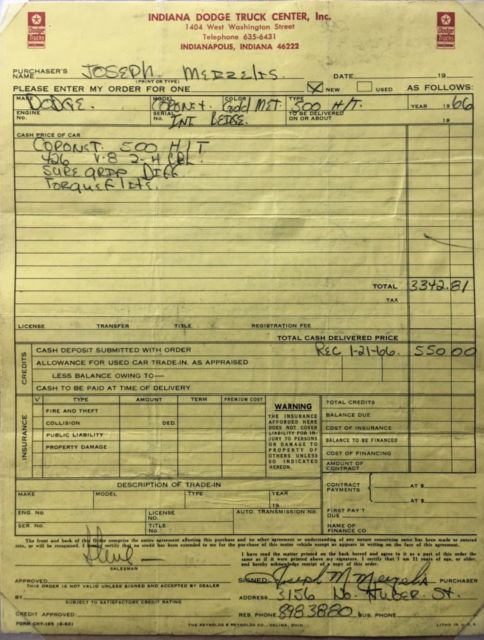 Dodge Trucks
INDIANA DODGE TRUCK CENTER, Inc.
1404 West Washington Street
Telephone 635-6431
INDIANAPOLIS, INDIANA 46222
Dodge Trucks
PURCHASER'S NAME JOSEPH MEZZELIS. DATE 19
(PRINT OR TYPE)
PLEASE ENTER MY ORDER FOR ONE X NEW USED AS FOLLOWS:
MAKE DODGE. MODEL CORONET. COLOR Gold MET. TYPE 500 H/T. YEAR 1966
ENGINE No. SERIAL No. INT BEIGE. TO BE DELIVERED ON OR ABOUT 19
CASH PRICE OF CAR
CORONET 500 H/T
426 V-8 2-4 CBL.
SURE GRIP DIFF.
TORQUEFLITE.
TOTAL 3342.81
TAX
LICENSE TRANSFER TITLE REGISTRATION FEE
TOTAL CASH DELIVERED PRICE
CREDITS
CASH DEPOSIT SUBMITTED WITH ORDER REC 1-21-66. 550.00
ALLOWANCE FOR USED CAR TRADE-IN. AS APPRAISED
LESS BALANCE OWING TO—
CASH TO BE PAID AT TIME OF DELIVERY
INSURANCE
V TYPE AMOUNT TERM PREMIUM COST
FIRE AND THEFT
COLLISION DED.
PUBLIC LIABILITY
PROPERTY DAMAGE
WARNING
THE INSURANCE
AFFORDED HERE
DOES NOT COVER
LIABILITY FOR IN-
JURY TO PERSONS
OR DAMAGE TO
PROPERTY OF
OTHERS UNLESS
SO INDICATED
HEREON.
TOTAL CREDITS
BALANCE DUE
COST OF INSURANCE
BALANCE TO BE FINANCED
COST OF FINANCING
AMOUNT OF CONTRACT
DESCRIPTION OF TRADE-IN
MAKE MODEL TYPE YEAR 19
ENG. NO. LICENSE NO. AUTO. TRANSMISSION NO.
SER. NO. TITLE No.
CONTRACT PAYMENTS AT $
AT $
FIRST PAY'T DUE
NAME OF FINANCE CO
The front and back of this Order comprise the entire agreement affecting this purchase and no other agreement or understanding of any nature concerning same has been made or entered
into, or will be recognized. I hereby certify that no credit has been extended to me for the purchase of this motor vehicle except as appears in writing on the face of this agreement.
I have read the matter printed on the back hereof and agree to it as a part of this order
same as if it were printed above my signature. I certify that I am 21 years of age, or older,
and hereby acknowledge receipt of a copy of this order.
SALESMAN
APPROVED
THIS ORDER IS NOT VALID UNLESS SIGNED AND ACCEPTED BY DEALER
BY
SUBJECT TO SATISFACTORY CREDIT RATING
CREDIT APPROVED
SIGNED Joseph M Mezzelis PURCHASER
ADDRESS 3156 No. Huber St.
RES. PHONE 8983880 BUS. PHONE
THE REYNOLDS & REYNOLDS CO., CELINA, OHIO
LITHO IN U. S. A.